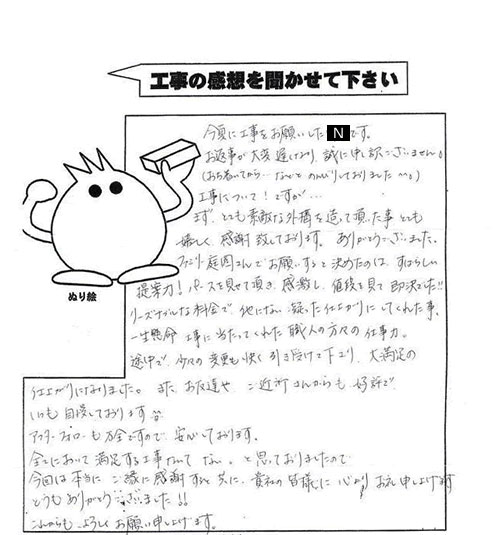 工事の感想を聞かせて下さい
今夏に工事をお願いした N です。
お返事が大変遅くなり、誠に申し訳ございません。
(おち着いてから…などと のんびりしておりました^^;)
工事について!ですが…
まず、とても素敵な外構を造って頂いた事 とても
嬉しく 感謝 致しております。ありがとうございました。
ファミリー庭園さんでお願いすると決めたのは、すばらしい
提案力!パースを見せて頂き、感激し、値段を見て 即決でした!!
リーズナブルな料金で、他にない 凝った仕上がりにしてくれた事、
一生懸命 工事に当たってくれた 職人の方々の仕事力。
途中で、少々の変更も快く引き受けて下さり、大満足の
ぬり絵
仕上がりになりました。また、お友達や ご近所さんからも 好評で
いつも自慢しております
アフターフォローも万全ですので、安心しております。
全てにおいて 満足する工事なんて ない。と思っておりましたので
今回は本当に ご縁に感謝すると共に、貴社の皆様に 心より お礼申し上げます
どうもありがとうございました!!
これからも、よろしくお願い申し上げます。